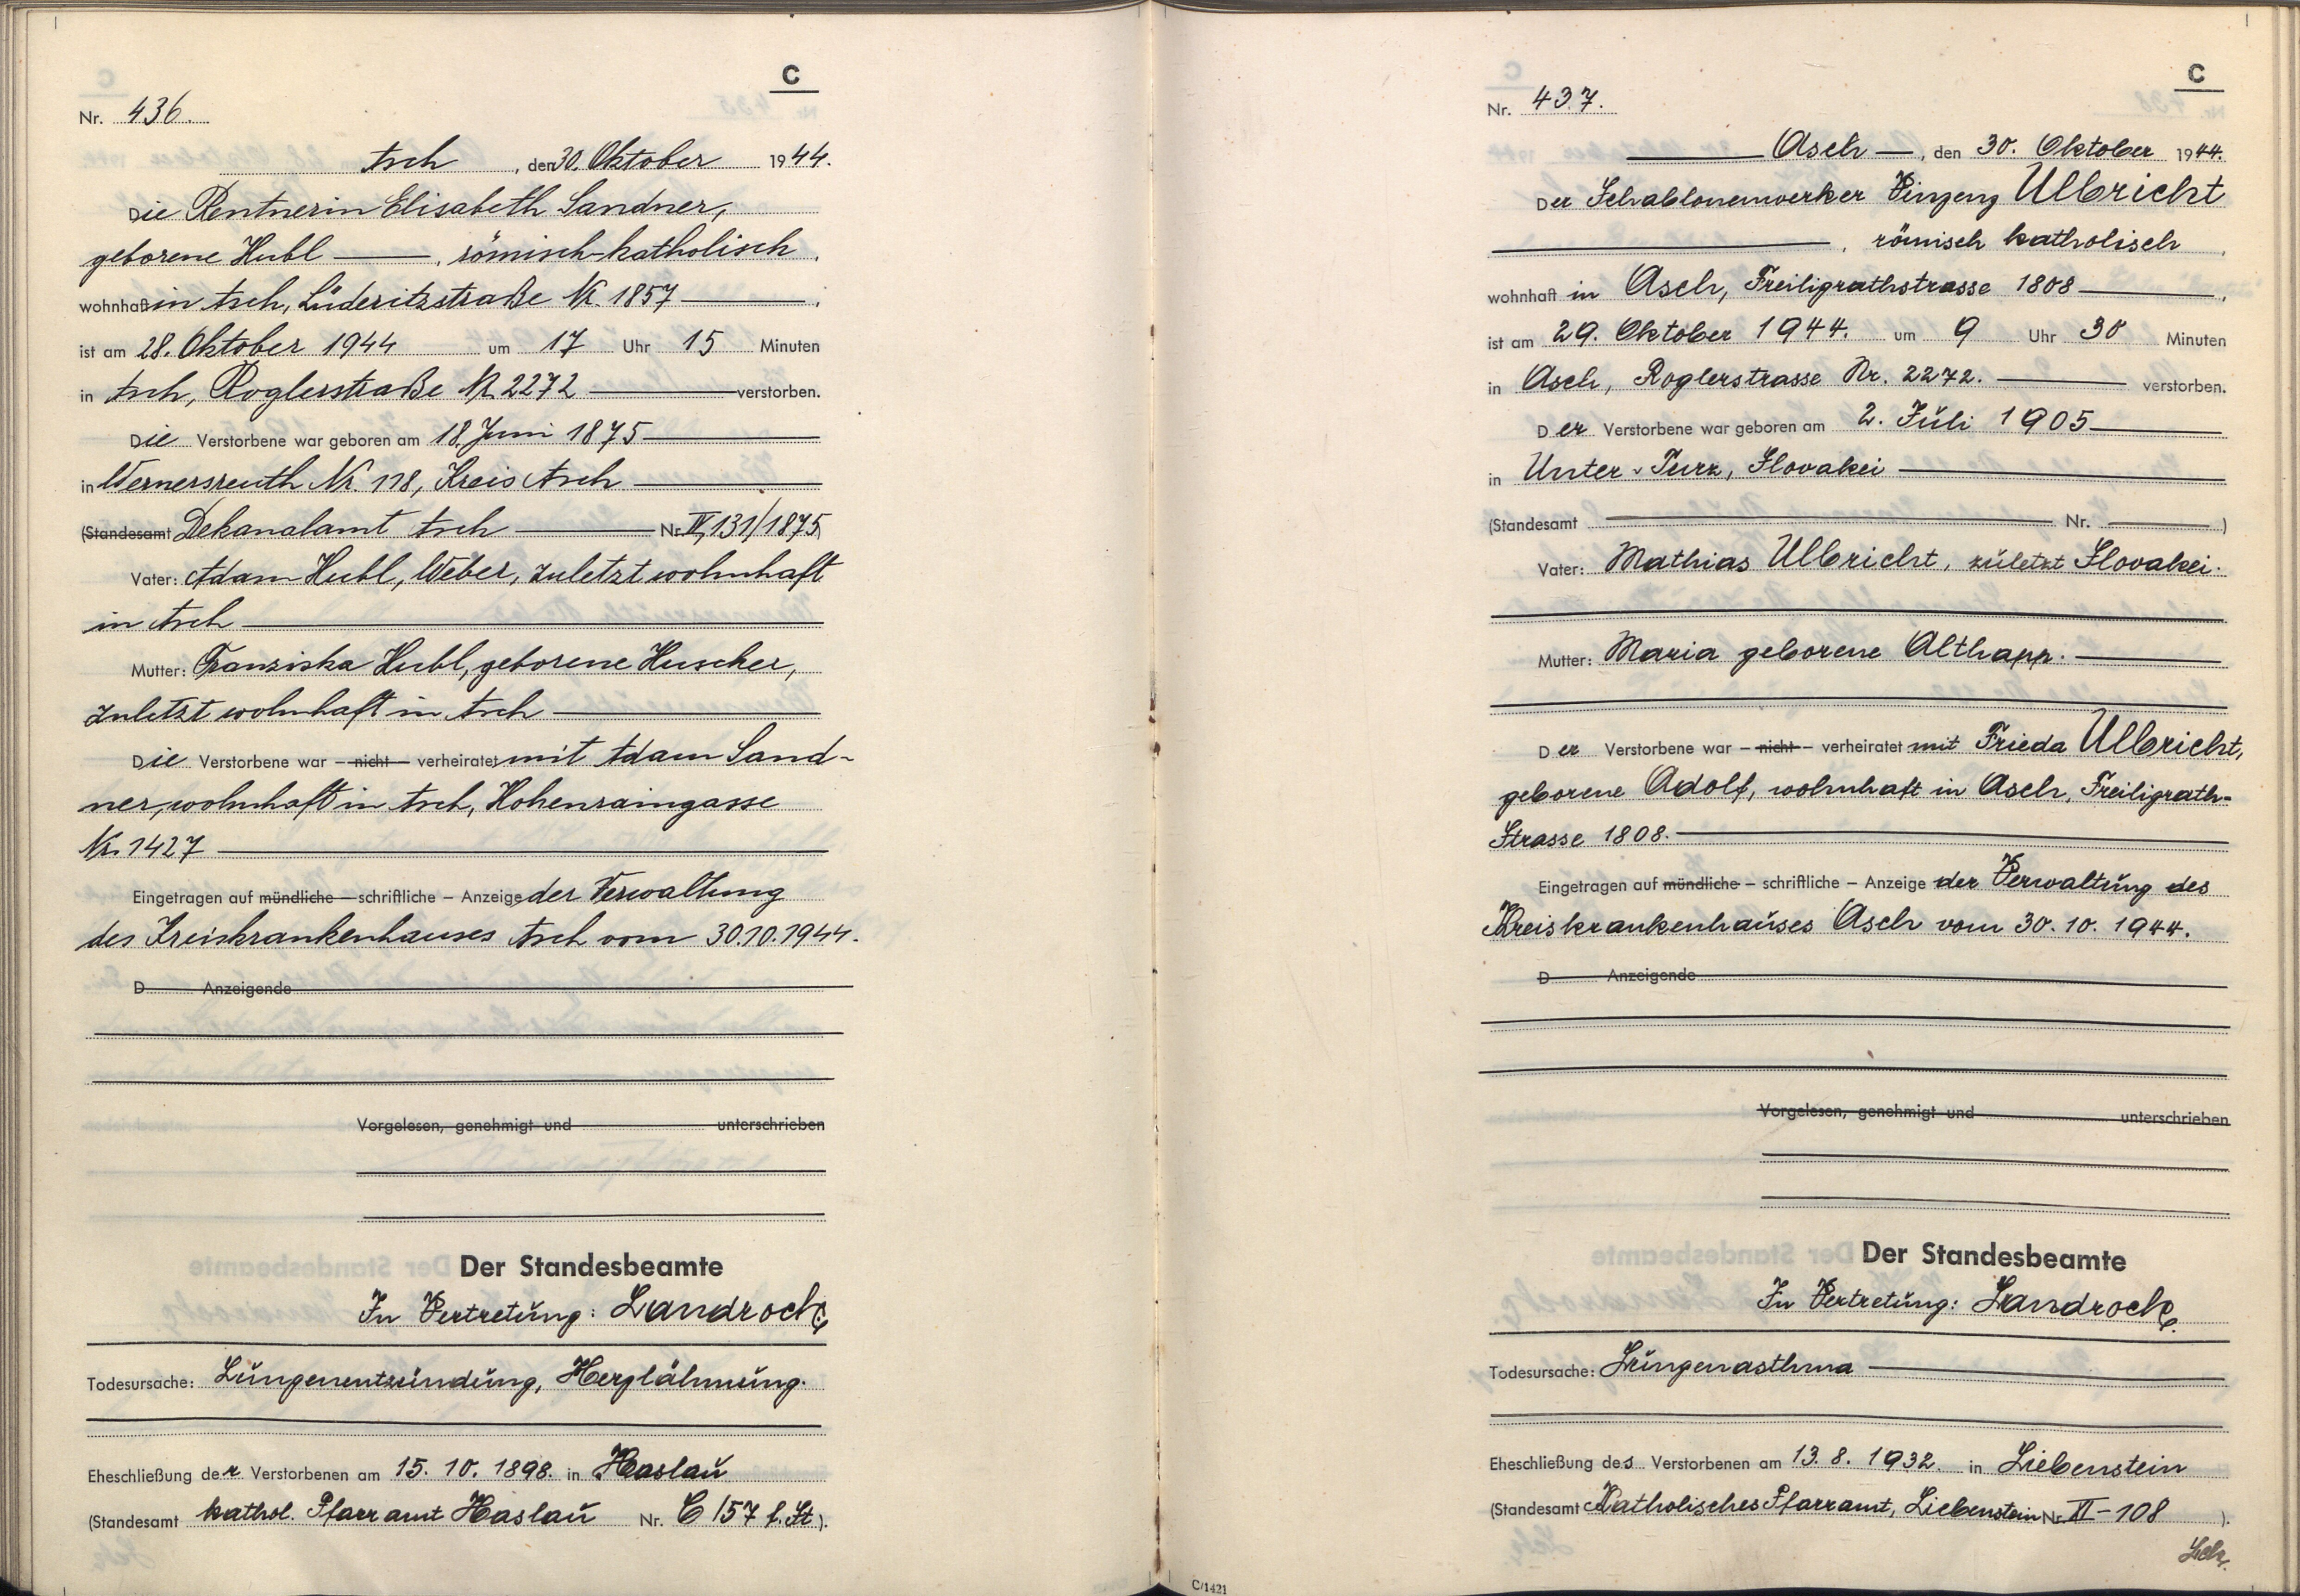 C
Nr. 436.
Asch, den 30. Oktober 1944.
Die Rentnerin Elisabeth Sandner,
geborene Hubl, römisch-katholisch,
wohnhaft in Asch, Lüderitzstraße Nr. 1857,
ist am 28. Oktober 1944 um 17 Uhr 15 Minuten
in Asch, Roglerstraße Nr. 2272 verstorben.
Die Verstorbene war geboren am 18. Juni 1875
in Wernersreuth Nr. 118, Kreis Asch
(Standesamt Dekanalamt Asch Nr. IV, 131/1875)
Vater: Adam Hubl, Weber, zuletzt wohnhaft
in Asch
Mutter: Franziska Hubl, geborene Huscher,
zuletzt wohnhaft in Asch
Die Verstorbene war – nicht – verheiratet mit Adam Sand-
ner, wohnhaft in Asch, Hohenraingasse
Nr. 1427
Eingetragen auf mündliche – schriftliche – Anzeige der Verwaltung
des Kreiskrankenhauses Asch vom 30.10.1944.
D Anzeigende
Vorgelesen, genehmigt und unterschrieben
Der Standesbeamte
In Vertretung: Landrock
Todesursache: Lungenentzündung, Herzlähmung.
Eheschließung der Verstorbenen am 15. 10. 1898. in Haslau
(Standesamt kathol. Pfarramt Haslau Nr. C/57 f. St.).
C
Nr. 437.
Asch, den 30. Oktober 1944.
Der Schablonenwerker Vinzenz Ulbricht
, römisch katholisch,
wohnhaft in Asch, Freiligrathstrasse 1808,
ist am 29. Oktober 1944. um 9 Uhr 30 Minuten
in Asch, Roglerstrasse Nr. 2272. verstorben.
Der Verstorbene war geboren am 2. Juli 1905
in Unter-Turz, Slovakei
(Standesamt Nr. )
Vater: Mathias Ulbricht, zuletzt Slovakei.
Mutter: Maria geborene Althapp.
Der Verstorbene war – nicht – verheiratet mit Frieda Ulbricht,
geborene Adolf, wohnhaft in Asch, Freiligrath-
Strasse 1808.
Eingetragen auf mündliche – schriftliche – Anzeige der Verwaltung des
Kreiskrankenhauses Asch vom 30. 10. 1944.
D Anzeigende
Vorgelesen, genehmigt und unterschrieben
Der Standesbeamte
In Vertretung: Landrock
Todesursache: Lungenasthma
Eheschließung des Verstorbenen am 13. 8. 1932. in Liebenstein
(Standesamt Katholisches Pfarramt, Liebenstein Nr. VI-108 ).
C/1421